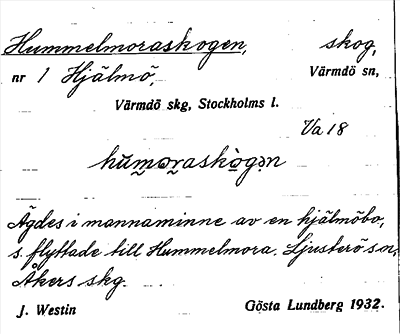 Hummelmoraskogen, skog,
nr 1 Hjälmö, Värmdö sn,
Värmdö skg, Stockholms l.
Va 18
hŭmoraskògən
Ägdes i mannaminne av en hjälmöbo,
s. flyttade till Hummelmora. Ljusterö sn,
Åkers skg.
J. Westin Gösta Lundberg 1932.